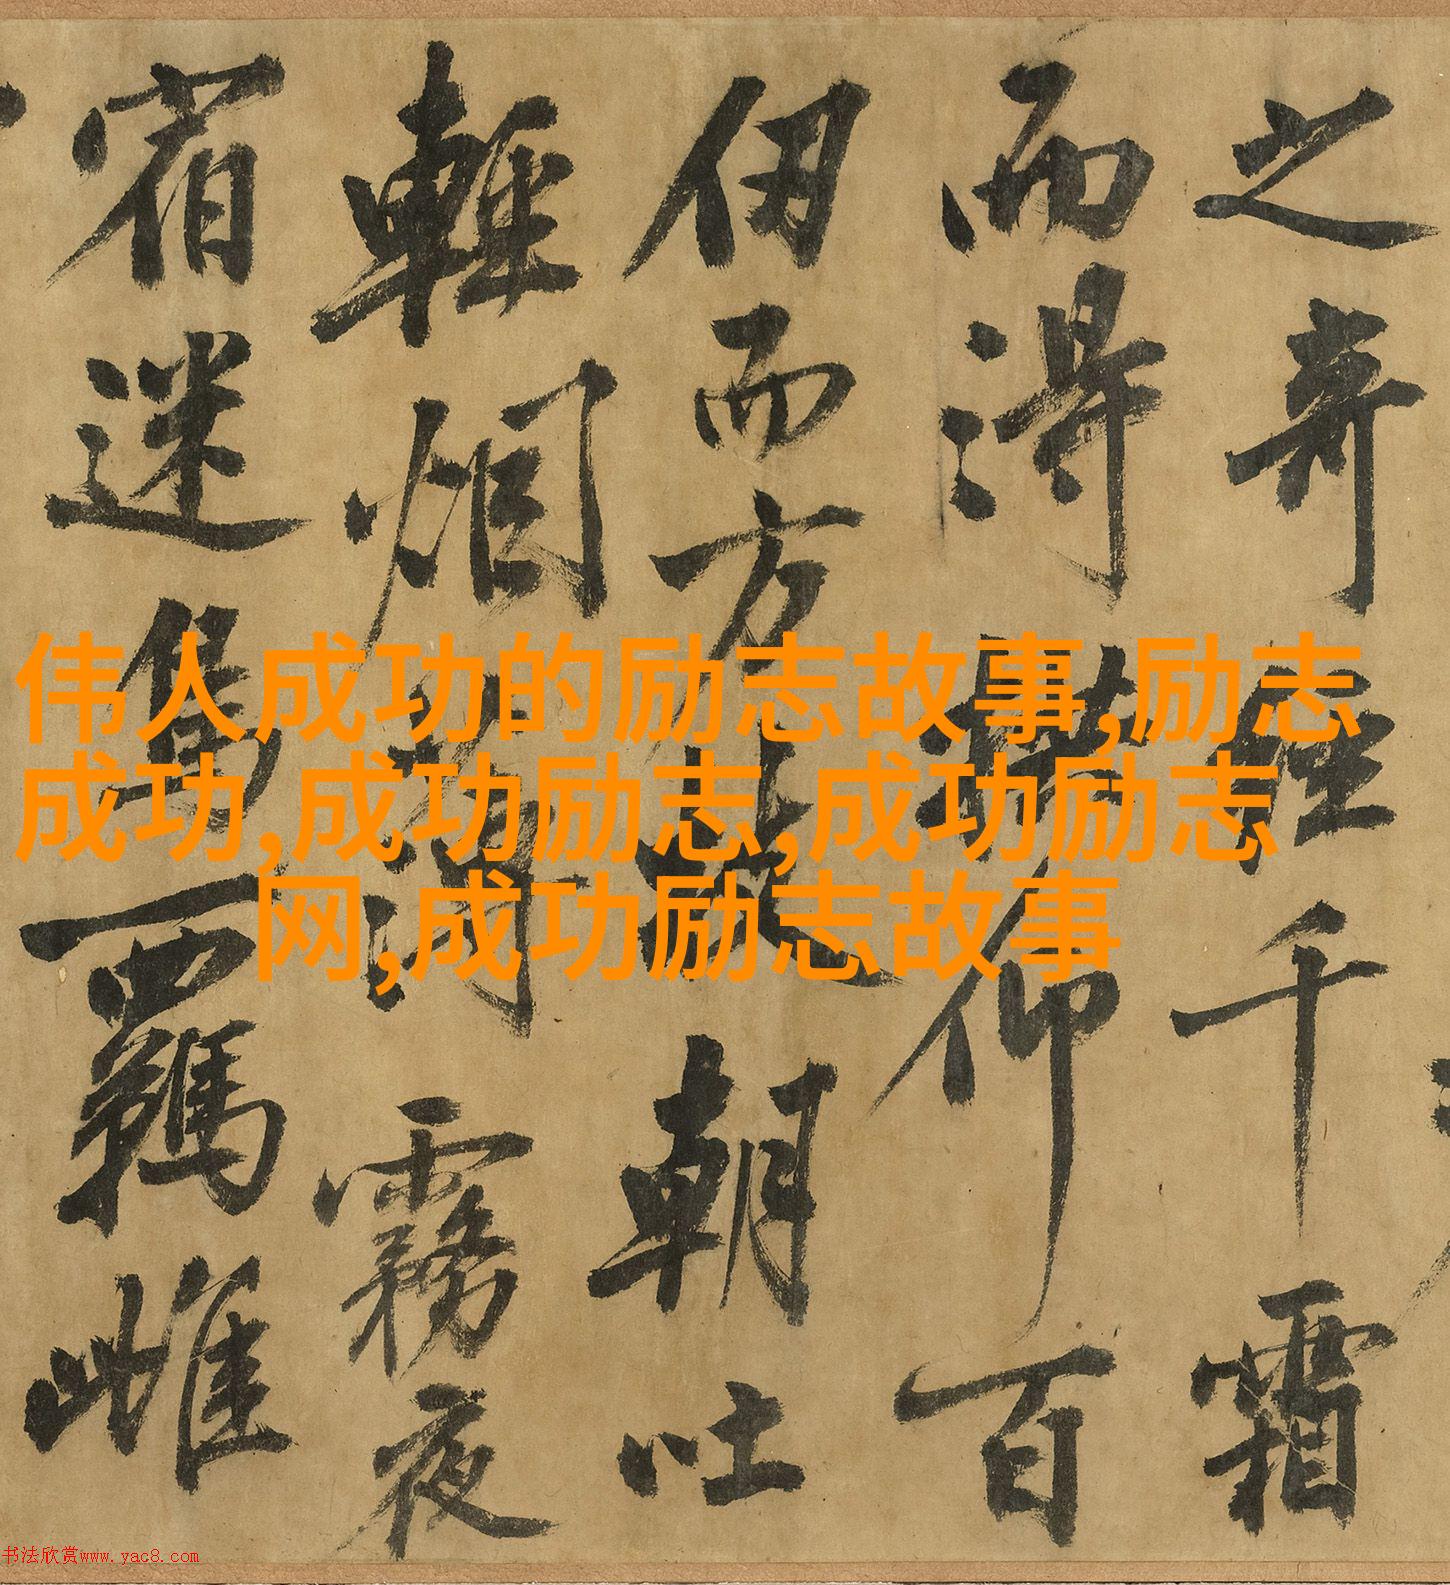 之奇經千霜
而得拱仰百
仞而方枝朝吐
輕烟薄霧夜
宿迷鳥羈雌
伟人成功的励志故事,励志
成功,成功励志,成功励志
网,成功励志故事
书法欣赏www.yac8.com